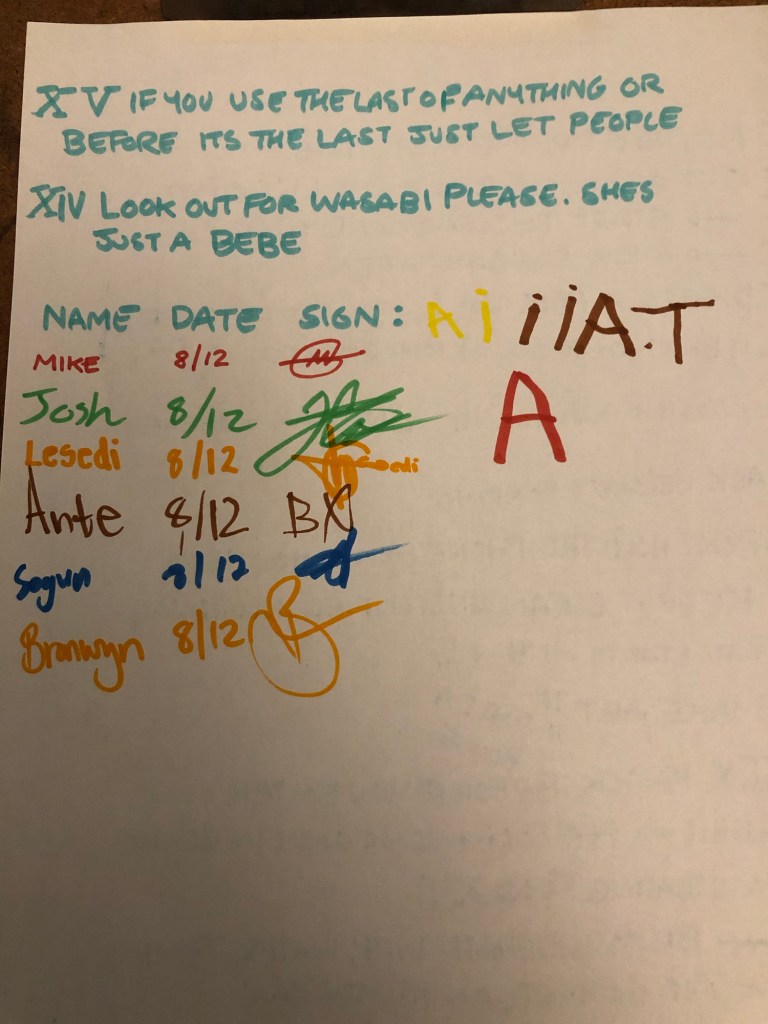 XV IF YOU USE THE LAST OF ANYTHING OR
BEFORE ITS THE LAST JUST LET PEOPLE
XIV LOOK OUT FOR WASABI PLEASE. SHES
JUST A BEBE
NAME DATE SIGN: A i i i A.T
MIKE 8/12
A
Josh 8/12
Lesedi 8/12
Ante 8/12 BX
Segun 8/12
Bronwyn 8/12